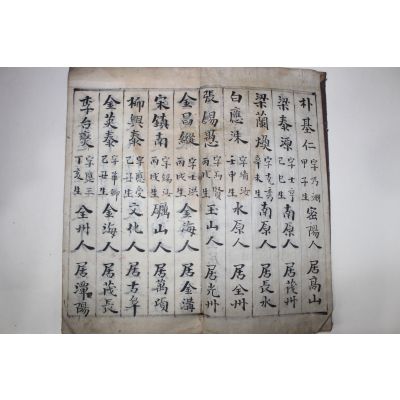 朴基仁 字乃淵 甲子生 密陽人 居高山
梁泰源 字士亨 己巳生 南原人 居茂州
梁蘭煥 字克秀 辛未生 南原人 居長水
白應洙 壬申生 水原人 居全州
張錫愚 字乃賢 丙戌生 玉山人 居光州
金昌縱 字士洪 丙戌生 金海人 居金溝
宋鎮南 丙戌生 礪山人 居萬頃
柳興泰 字應受 己丑生 文化人 居古阜
金英泰 字華卿 己丑生 金海人 居茂長
李台奭 字應三 丁亥生 全州人 居潭陽